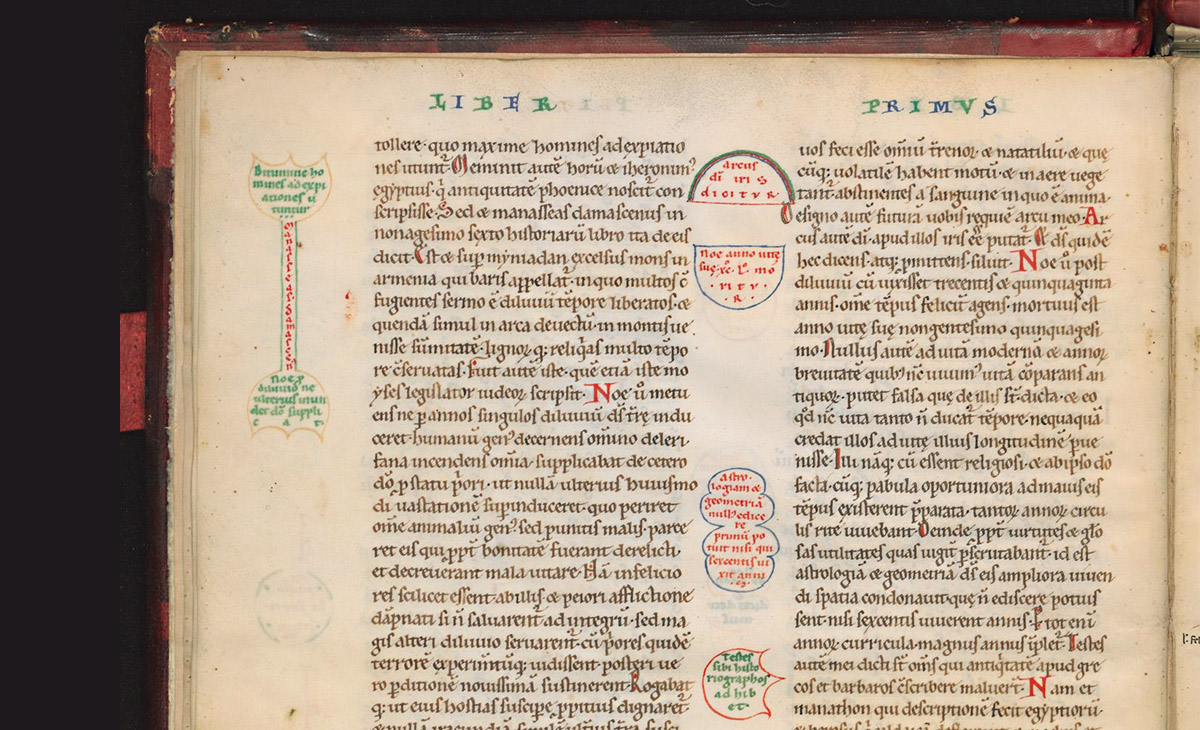 LIBER
PRIMVS
Bitumine ho
mines ad expi
ationes u
tuntur
manasseas damascen
Noe ꝑ
diluuio ne
ulterius inun
det dm̄ suppli
c a t.
tollere· quo maxime homines ad expiatio
nes utunt᷑. Meminit autē horū ⁊ iheronimꝰ
egyptius· q̇ antiquitatē phoenicē noscit᷑ con
scripsisse· Sed ⁊ manasseas damascenus in
nonagesimo sexto historiarū libro ita de eis
dicit. Est ⁊ sup̄ myniadan excelsus mons in
armenia qui baris appellat᷑· in quo multos c̄
fugientes sermo ē diluuii tēpore liberatos· ⁊
quendā simul in arca deuectū· in montis ue
nisse sūmitatē· lignoꝝ q; reliq̇as multo tēpo
re c̄seruatas. Fuit autē iste· quē etiā iste mo
yses legislator iudeoꝝ scripsit. Noe ū metu
ens ne ꝑ annos singulos diluuiū dn̄s tr̄ę indu
ceret· humanū genꝰ decernens omnino deleri·
sana incendens om̄ia· supplicabat de cetero
do꞉ ꝑ statu p̄ori· ut nullā ulterius huiusmo
di uastationē sup̄induceret· quo periret
om̄e animaliū genꝰ· sed punitis malis· parce
ret eis qui ꝓpt̄ bonitatē fuerant derelicti·
et decreuerant mala uitare· Nā infelicio
res scilicet essent· ab illis· ⁊ peiori afflictione
dāpnati si n̄ saluarent᷑ ad integrū· sed ma
gis alteri diluuio seruarent᷑· cū p̄ores quidē
terrorē experim̄tūq; uidissent· posteri ue
ro ꝑditionē nouissimā sustinerent. Rogabat
q; ut eius hostias suscip̄e ꝓpitius dignaret᷑·
arcus
dī iris
dicitvr
Noe anno uitę
suę·xc·lº·mo
ritv
·R·
astro
logiam ⁊
geometria
nullꝰ edice
re
primū po
tuit nisi qui
sexcentis ui
xit annis
Testes
sibi histo
riographos
adhib
et·
uos feci esse om̄iū t̄renoꝝ ⁊ natatiliū· ⁊ quę
cūq; uolatilē habent motū· ⁊ in aere uege
tant᷑· abstinentes a sanguine in quo ē anima·
Designo autē futurā uobis requiē arcu meo. Ar
cus autē dī· apud illos iris c̄e putat᷑. Et ds̄ quidē
hec dicens· atq; ꝓmittens· siluit. Noe ū post
diluuiū cū uixisset trecentis ⁊ quinquaginta
annis· om̄e tēpus feliciū agens· mortuus est
anno uitę suę nongentesimo quinquagesi
mo. Nullus autē ad uitā modernā ⁊ annoꝝ
breuitatē quibꝰ nc̄ uiuim̄ꝰ uitā cōparans an
tiquoꝝ· putet falsa quę de illis st̄· dicta· ⁊ eo
qd̄ nc̄ uita tanto n̄ ducat᷑ tēpore· nequaquā
credat illos ad uitę illius longitudinē ꝑue
nisse. Illi nāq; cū essent religiosi· ⁊ ab ipso do
facta· cūq; pabula oportuniora ad maius eis
tēpus existerent p̄parata· tantoꝝ annoꝝ circu
lis rite uiuebant. Deinde ꝓpt̄ uirtutes ⁊ glo
sas utilitates quas iugit᷑ ꝑscrutabant᷑· id est
astrologiā ⁊ geometriā ds̄ eis ampliora uiuen
di spatia condonauit· quę n̄ ediscere potuis
sent nisi sexcentis uiuerent annis. P tot enī
annoꝝ curricula· magnus annus īplet᷑. Testes
autē mei dicti st̄ om̄s qui antiq̇tatē apud gre
cos et barbaros c̄scribere maluert̄. Nam et
manathon qui descriptionē fecit egyptiorū·